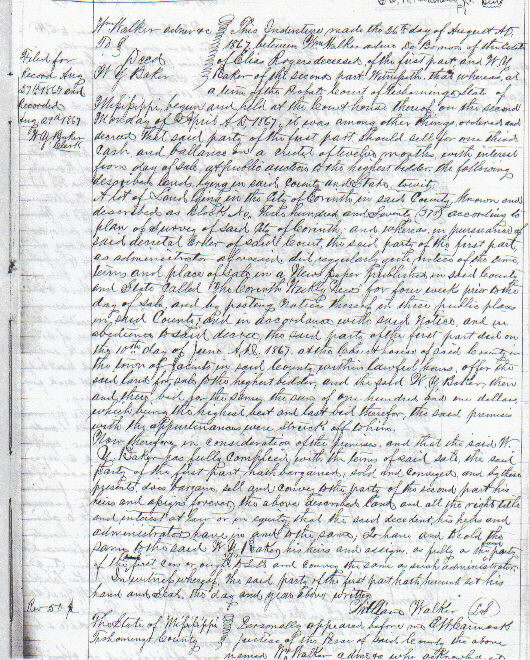 Wm Walker admr &c
To } Deed
W Y Baker
Filed for
Record Aug
27th 1867 and
Recorded
Aug 29th 1867
W. Y. Baker
Clerk
This Indenture made the 26th day of August AD.
1867 between Wm Walker admr De Bonis of the Estate
of Elias Rogers deceased, of the first part and W Y
Baker of the second part, Witnesseth, that whereas, at
a term of the Probate Court of Tishomingo State of
Mississippi begun and held at the Court house thereof on the second
Monday of April A D 1867, it was among other things ordered and
decreed that said party of the first part should sell for one third
cash and ballance on a credit of twelve months with interest
from day of sale, at public auction to the highest bidder, the following
described lands lying in said County and State, to wit,
A lot of Land lying in the City of Corinth in said County, known and
described as Block No. three hundred and seventy according to
plan of Survey of said City of Corinth, and whereas, in pursuance of
said decretal order of said Court, the said party of the first part,
as administrator aforesaid did regularly give notice of the time
terms and place of sale in a News paper published in said County
and State called the Corinth Weekly News for four week prior to the
day of sale, and by posting Notices thereof in three public places
in said County, and in accordance with said Notice, and in
obedience to said decree, the said party of the first part did on
the 10th day of June A.D. 1867, at the Court house of said County in
the town of Jacinto in said County within lawful hours, offer the
said land for sale to the highest bidder, and the said W. Y. Baker, then
and there, bid for the same, the sum of one hundred and one dollars,
which being the highest best and last bid therefor, the said premises
with the appurtenances were struck off to him.
Now therefore in consideration of the premises, and that the said W.
Y. Baker has fully complied with the terms of said sale, the said
party of the first part hath bargained, sold and conveyed, and by these
presents does bargain, sell and convey to the party of the second part his
heirs and assigns forever, the above described land, and all the right title
and interest at law or in equity that the said decedent his heirs and
administrator have in and to the same, to have and to hold the
same to the said W. Y. Baker, his heirs and assigns, as fully as the party
of the first can or ought to sell and convey the same as such administrator.
In witness whereof, the said party of the first part hath hereunto set his
hand and seal, the day and year above written
William Walker
The State of Mississippi
Tishomingo County
Personally appeared before me
Justice of the Peace of said County the above
named Wm Walker admr &c who acknowledged